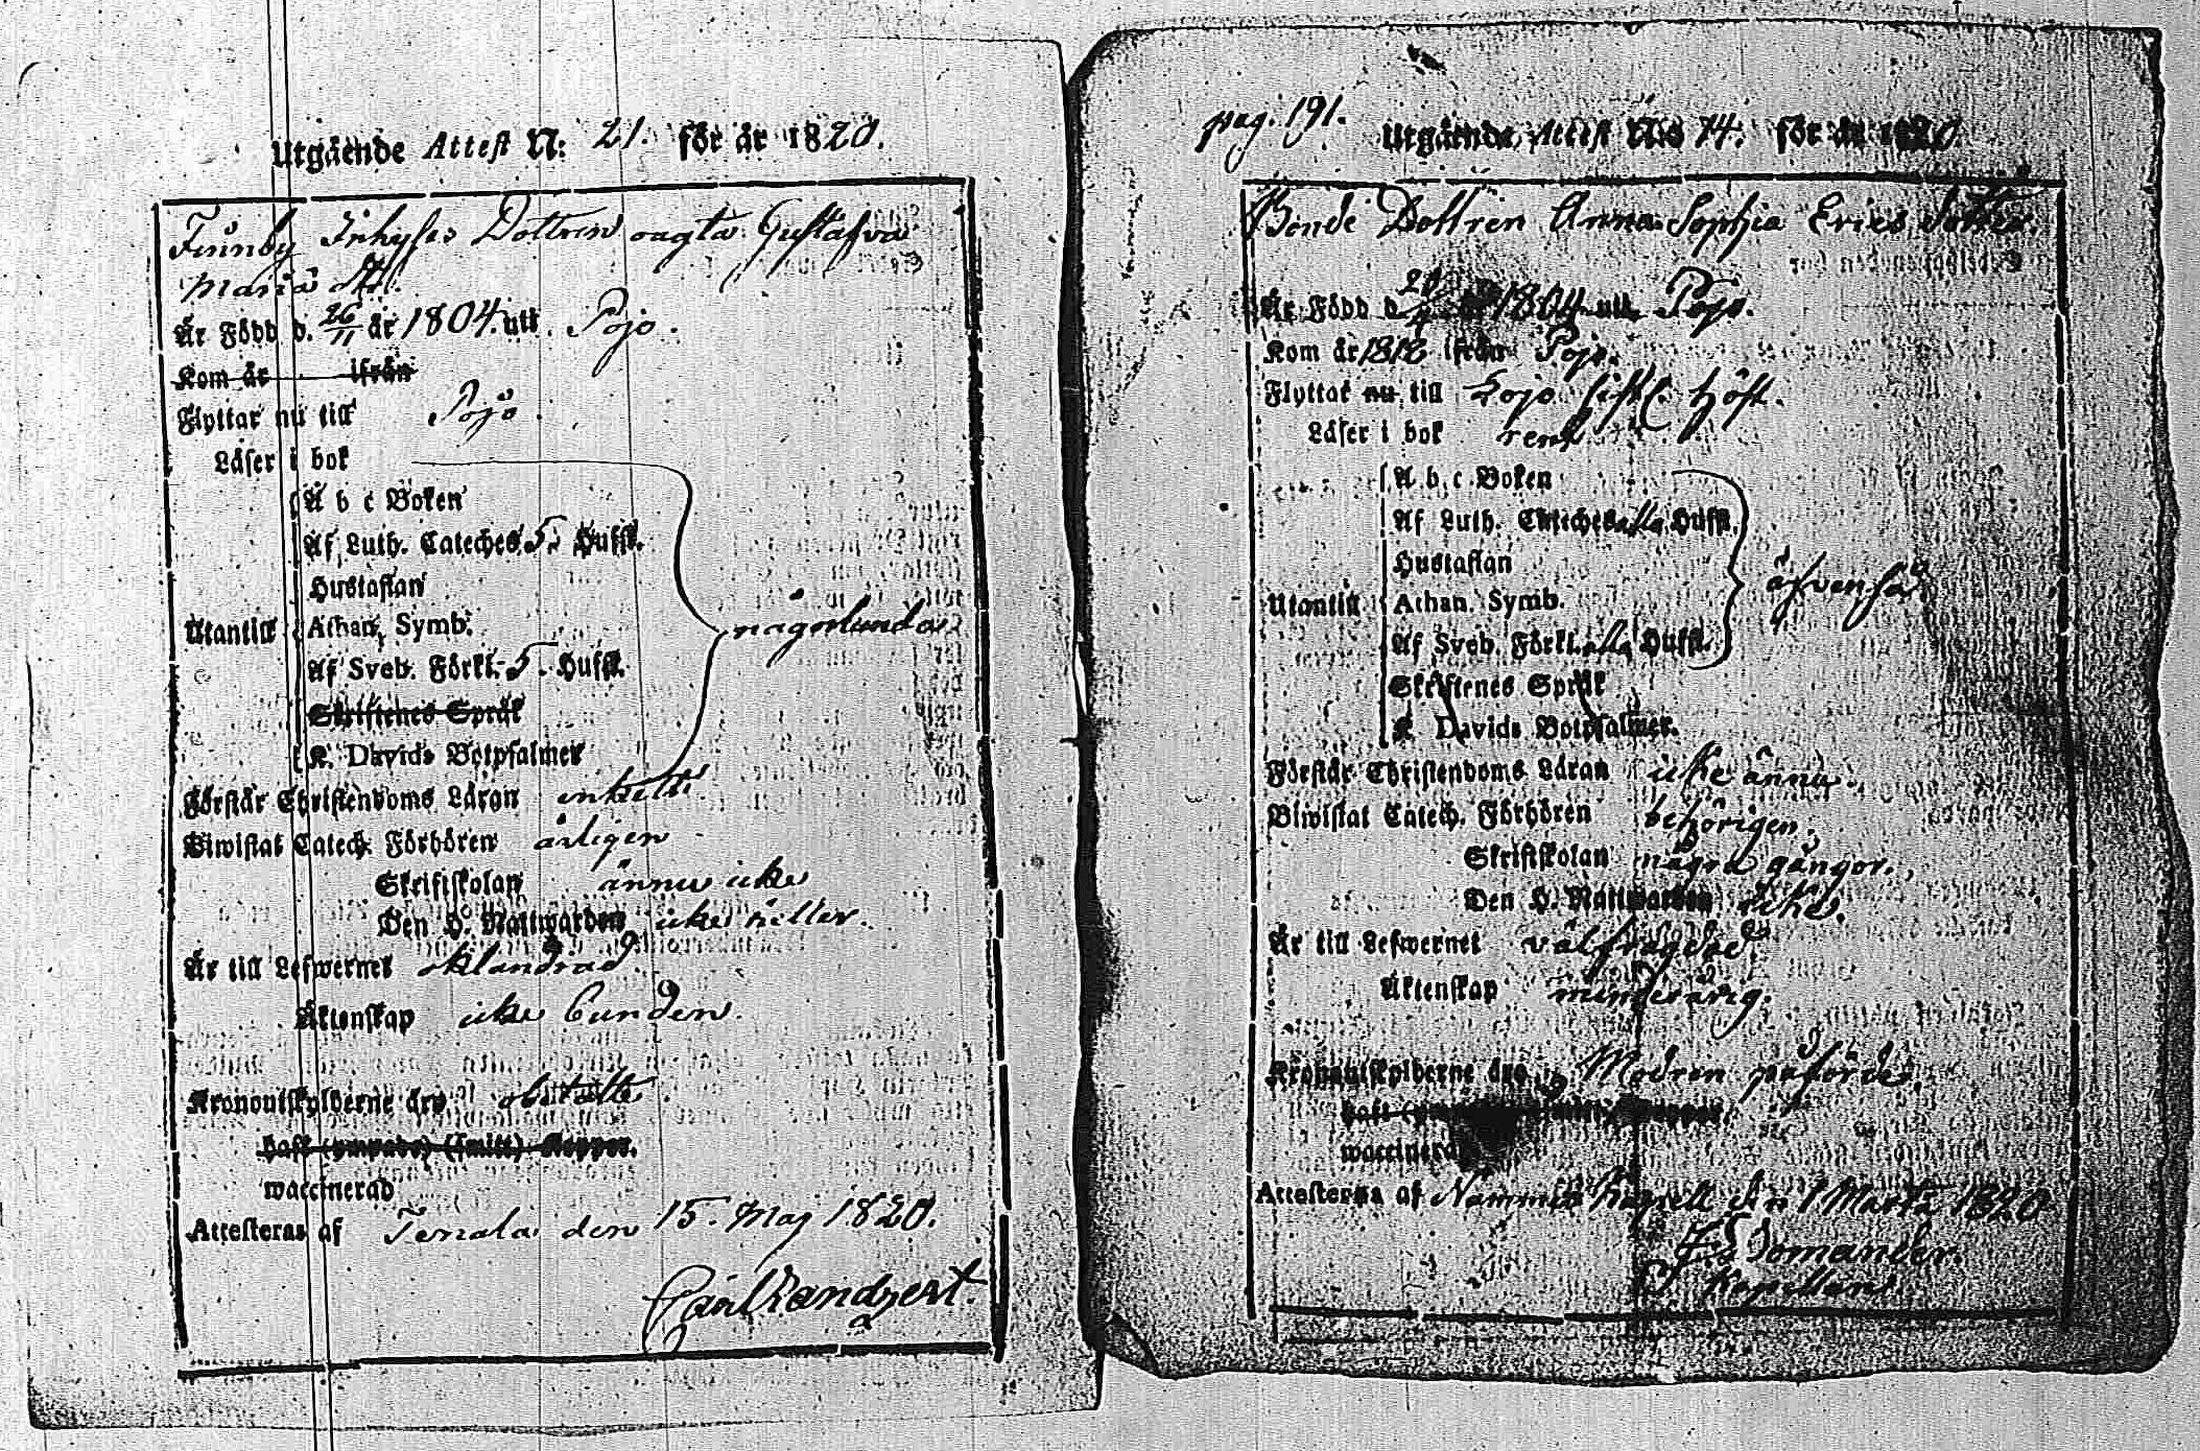 Utgående Attest N: 21. för år 1820.
Finnby Inhyses Dottren oagta Gustafva
Maria
Är Född d. 26/11 år 1804. utі Pojo.
Kom år ifrån
Flyttar nu till Pojo.
Läser i bok
A b c Boken
Af Luth. Cateches 5. Hufst.
Hustaflan
Utantill Athan. Symb. någorlunda
Af Sveb. Förkl. 5. Hufst.
Skriftenes Språk
K. Davids Botpsalmer
Förstår Christendoms Läran enkelt
Biwistat Catech. Förhören årligen
Skriftskolan ännu icke
Den H. Nattwarden icke heller.
Är till Lefwernet oklandrad.
Äktenskap icke bunden.
Kronoutskylderne äro obetalte
haft (ympade) (smitt) Koppor.
waccinerad
Attesteras af Tenala den 15. Maj 1820.
pag. 191.
Utgående Attest N:o 14. för år 1820.
Bonde Dottren Anna Sophia Erics Dotter.
Är Född d 1804 uti Pojo.
Kom år 1818 ifrån Pojo.
Flyttar nu till Lojo sistl. höst.
Läser i bok rent
A b c Boken
Af Luth. Cateches alla Hufst.
Hustaflan äfvenså
Utantill Athan. Symb.
Af Sveb. Förkl. alla Hufst.
Skriftenes Språk
K Davids Botpsalmer.
Förstår Christendoms Läran icke ännu.
Biwistat Catech. Förhören behörigen.
Skriftskolan några gångor.
Den H. Nattwarden icke.
Är till Lefwernet välfrägdad
Äktenskap minderårig.
Kronoutskylderne äro Modren påförde.
haft
waccinerad
Attesteras af Nummis Kapell den 1 Martii 1820
Kapellan